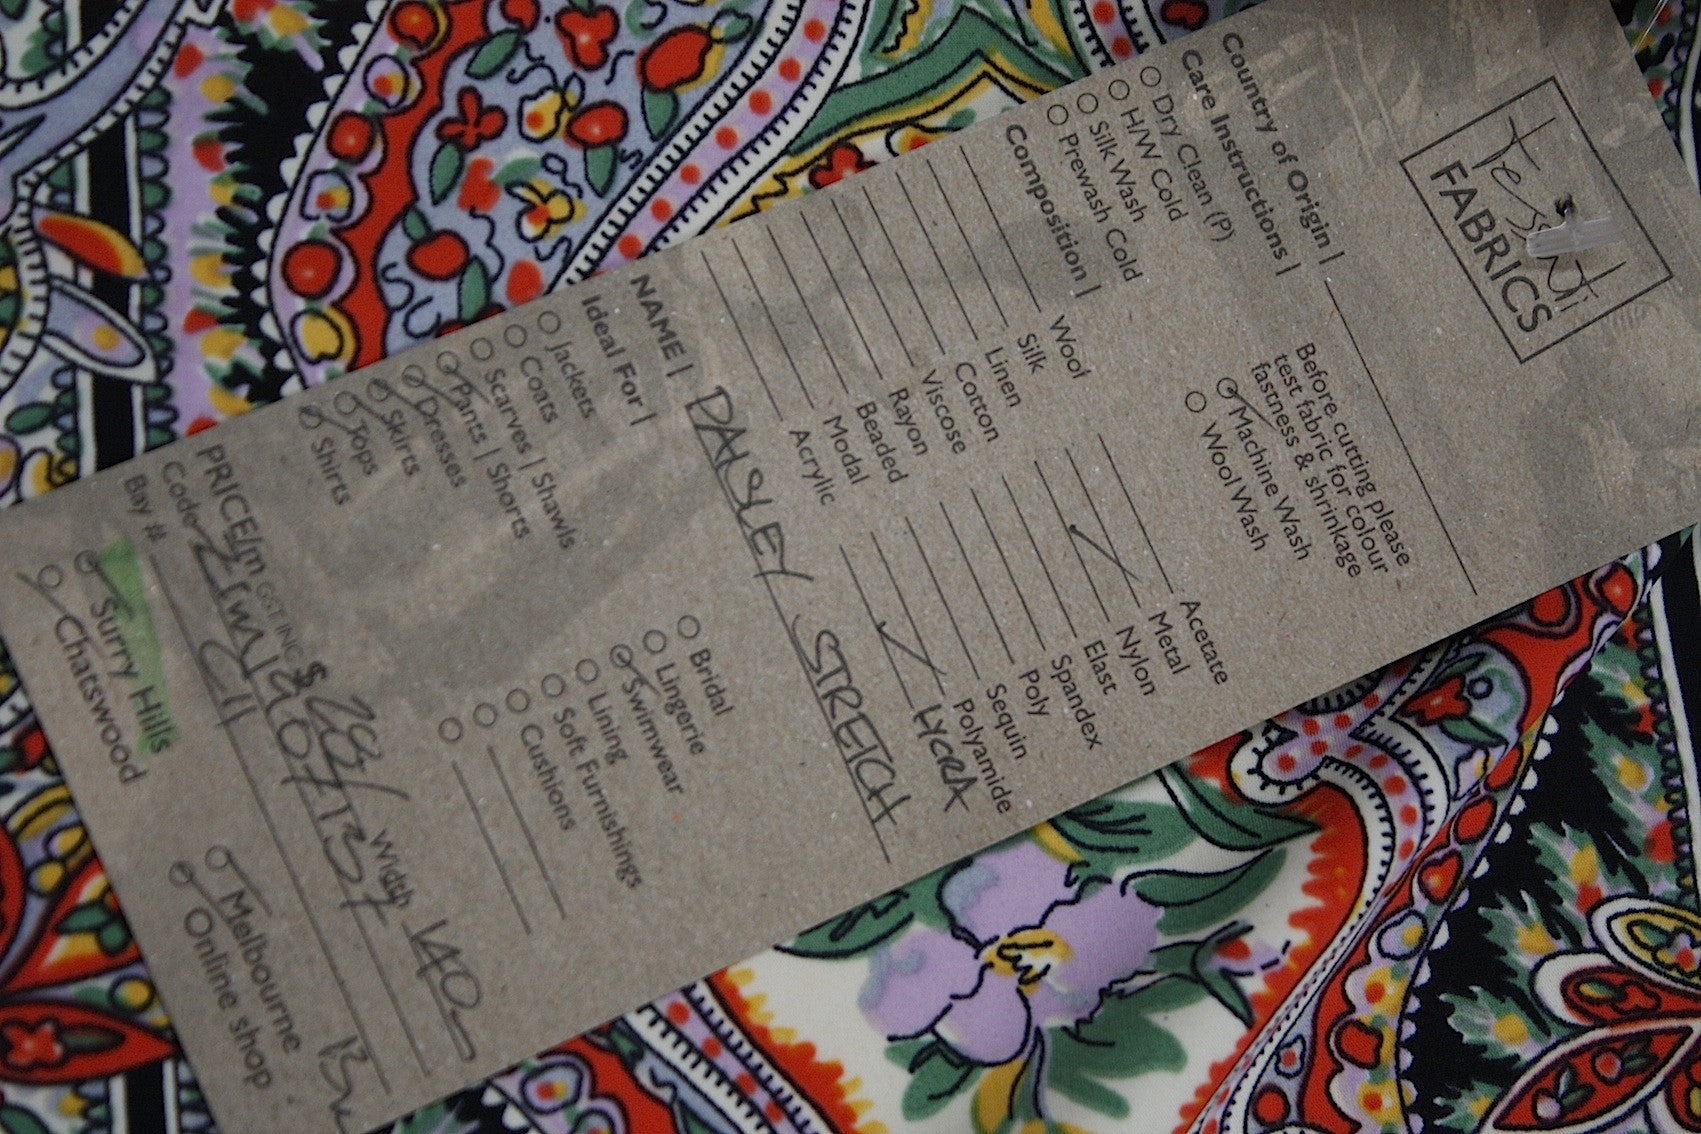 Tessuti
FABRICS
Country of Origin |
Care Instructions |
Dry Clean (P)
H/W Cold
Silk Wash
Prewash Cold
Before cutting please
test fabric for colour
fastness & shrinkage
Machine Wash
Wool Wash
Composition |
Wool
Silk
Linen
Cotton
Viscose
Rayon
Beaded
Modal
Acrylic
Acetate
Metal
Nylon
Elast
Spandex
Poly
Sequin
Polyamide
LYCRA
NAME | PAISLEY STRETCH
Ideal For |
Jackets
Coats
Scarves | Shawls
Pants | Shorts
Dresses
Skirts
Tops
Shirts
Bridal
Lingerie
Swimwear
Lining
Soft Furnishings
Cushions
PRICE/m GST INC $ Width 140
Code
Bay #
Surry Hills
Chatswood
Melbourne
Online shop